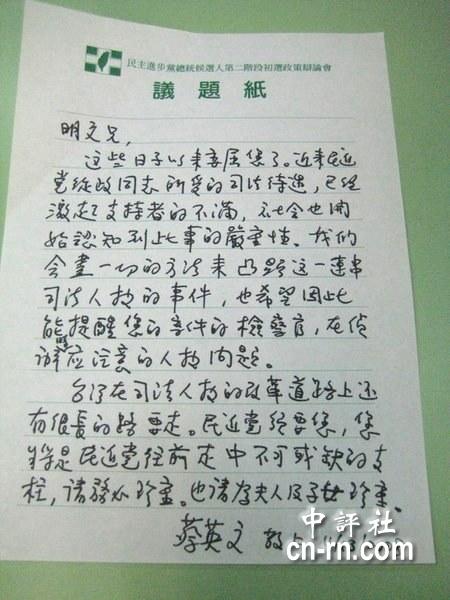 民主進步黨總統候選人第二階段初選政策辯論會
議題紙
明文兄,
這些日子以來委屈您了。近來民近
党從政同志所受的司法待遇,已經
激起支持者的不滿,社会也開
始認知到此事的嚴重性。我們
会盡一切的方法來凸顯這一連串
司法人权的事件,也希望因此
能提醒您的案件的檢警官,在偵
辦應注意的人权问題。
台湾在司法人权的改革道路上还
有很長的路要走。民近党须要您,您
将是民近党往前走中不可或缺的支
柱,请務必珍重。也请為夫人及子女珍重。
蔡英文 敬上
中評社
cn-rn.com